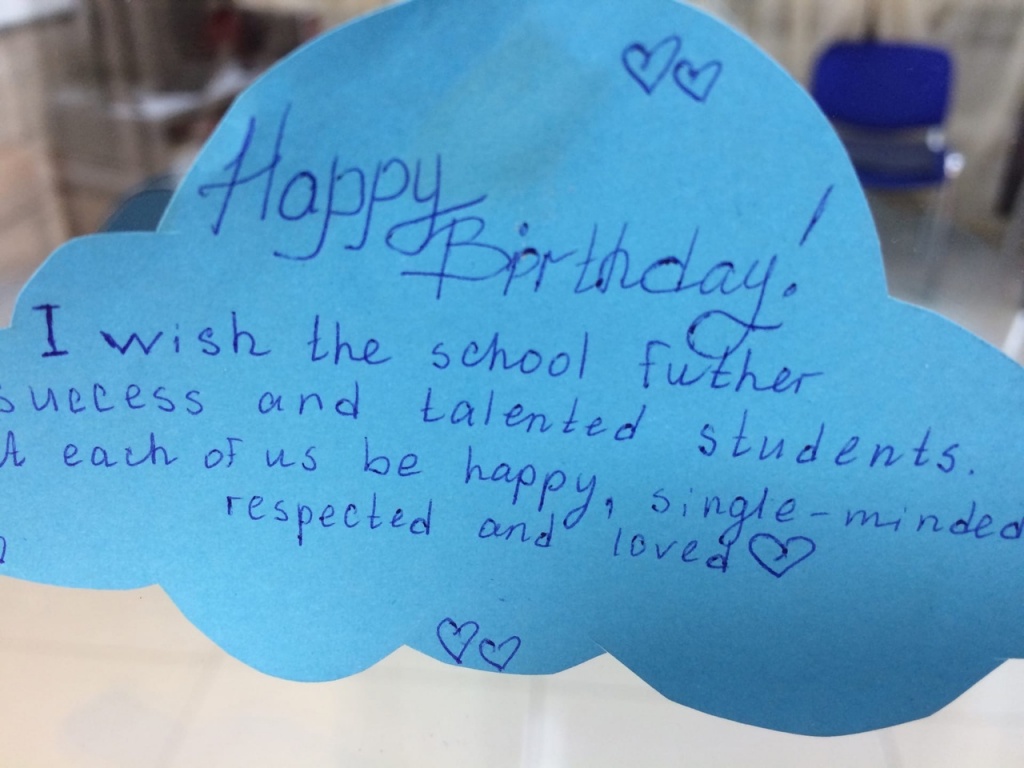 Happy
Birthday!
I wish the school futher
success and talented students.
each of us be happy, single-minded
respected and loved